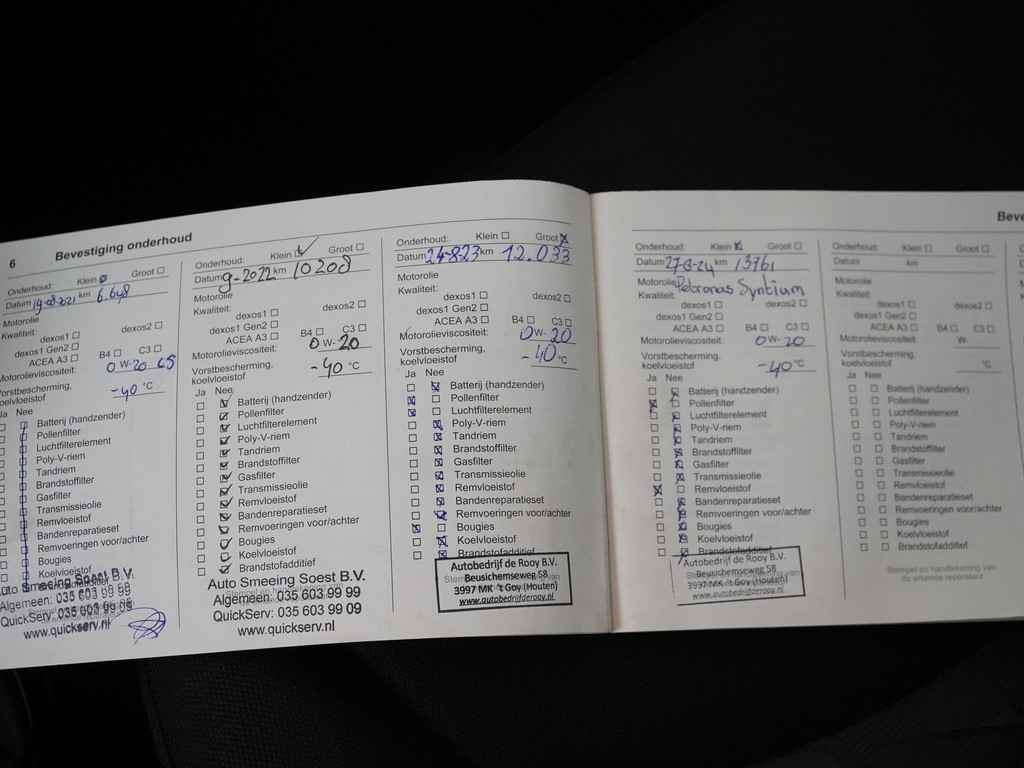 6 Bevestiging onderhoud
Onderhoud: Klein Groot
Datum 19-08-2021 km 6.648
Motorolie
Kwaliteit:
dexos1 dexos2
dexos1 Gen2
ACEA A3 B4 C3
Motorolieviscositeit: 0 W-20
Vorstbescherming, koelvloeistof -40 °C
Ja Nee
Batterij (handzender)
Pollenfilter
Luchtfilterelement
Poly-V-riem
Tandriem
Brandstoffilter
Gasfilter
Transmissieolie
Remvloeistof
Bandenreparatieset
Remvoeringen voor/achter
Bougies
Koelvloeistof
Auto Smeeing Soest B.V.
Algemeen: 035 603 99 99
QuickServ: 035 603 99 09
www.quickserv.nl
Onderhoud: Klein Groot
Datum 9-2022 km 10208
Motorolie
Kwaliteit:
dexos1 dexos2
dexos1 Gen2
ACEA A3 B4 C3
Motorolieviscositeit: 0 W-20
Vorstbescherming,
koelvloeistof -40 °C
Ja Nee
Batterij (handzender)
Pollenfilter
Luchtfilterelement
Poly-V-riem
Tandriem
Brandstoffilter
Gasfilter
Transmissieolie
Remvloeistof
Bandenreparatieset
Remvoeringen voor/achter
Bougies
Koelvloeistof
Brandstofadditief
Auto Smeeing Soest B.V.
Algemeen: 035 603 99 99
QuickServ: 035 603 99 09
www.quickserv.nl
Onderhoud: Klein Groot
Datum 24-8-23 km 12.033
Motorolie
Kwaliteit:
dexos1 dexos2
dexos1 Gen2
ACEA A3 B4 C3
Motorolieviscositeit: 0 W-20
Vorstbescherming,
koelvloeistof -40 °C
Ja Nee
Batterij (handzender)
Pollenfilter
Luchtfilterelement
Poly-V-riem
Tandriem
Brandstoffilter
Gasfilter
Transmissieolie
Remvloeistof
Bandenreparatieset
Remvoeringen voor/achter
Bougies
Koelvloeistof
Brandstofadditief
Autobedrijf de Rooy B.V.
Beusichemseweg 58
3997 MK 't Goy (Houten)
www.autobedrijfderooy.nl
Beve
Onderhoud: Klein Groot
Datum km 13761
Motorolie Petronas Syntium
Kwaliteit:
dexos1 dexos2
dexos1 Gen2
ACEA A3 B4 C3
Motorolieviscositeit: 0 W-20
Vorstbescherming,
koelvloeistof -40 °C
Ja Nee
Batterij (handzender)
Pollenfilter
Luchtfilterelement
Poly-V-riem
Tandriem
Brandstoffilter
Gasfilter
Transmissieolie
Remvloeistof
Bandenreparatieset
Remvoeringen voor/achter
Bougies
Koelvloeistof
Brandstofadditief
Autobedrijf de Rooy B.V.
Beusichemseweg 58
3997 MK 't Goy (Houten)
www.autobedrijfderooy.nl
Onderhoud: Klein Groot
Datum km
Motorolie
Kwaliteit:
dexos1 dexos2
dexos1 Gen2
ACEA A3 B4 C3
Motorolieviscositeit: W-
Vorstbescherming,
koelvloeistof °C
Ja Nee
Batterij (handzender)
Pollenfilter
Luchtfilterelement
Poly-V-riem
Tandriem
Brandstoffilter
Gasfilter
Transmissieolie
Remvloeistof
Bandenreparatieset
Remvoeringen voor/achter
Bougies
Koelvloeistof
Brandstofadditief
Stempel en handtekening van
de erkende reparateur